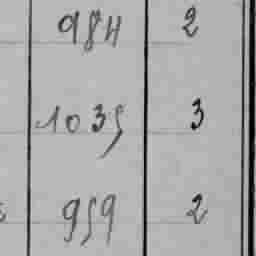 984 2
1035 3
959 2